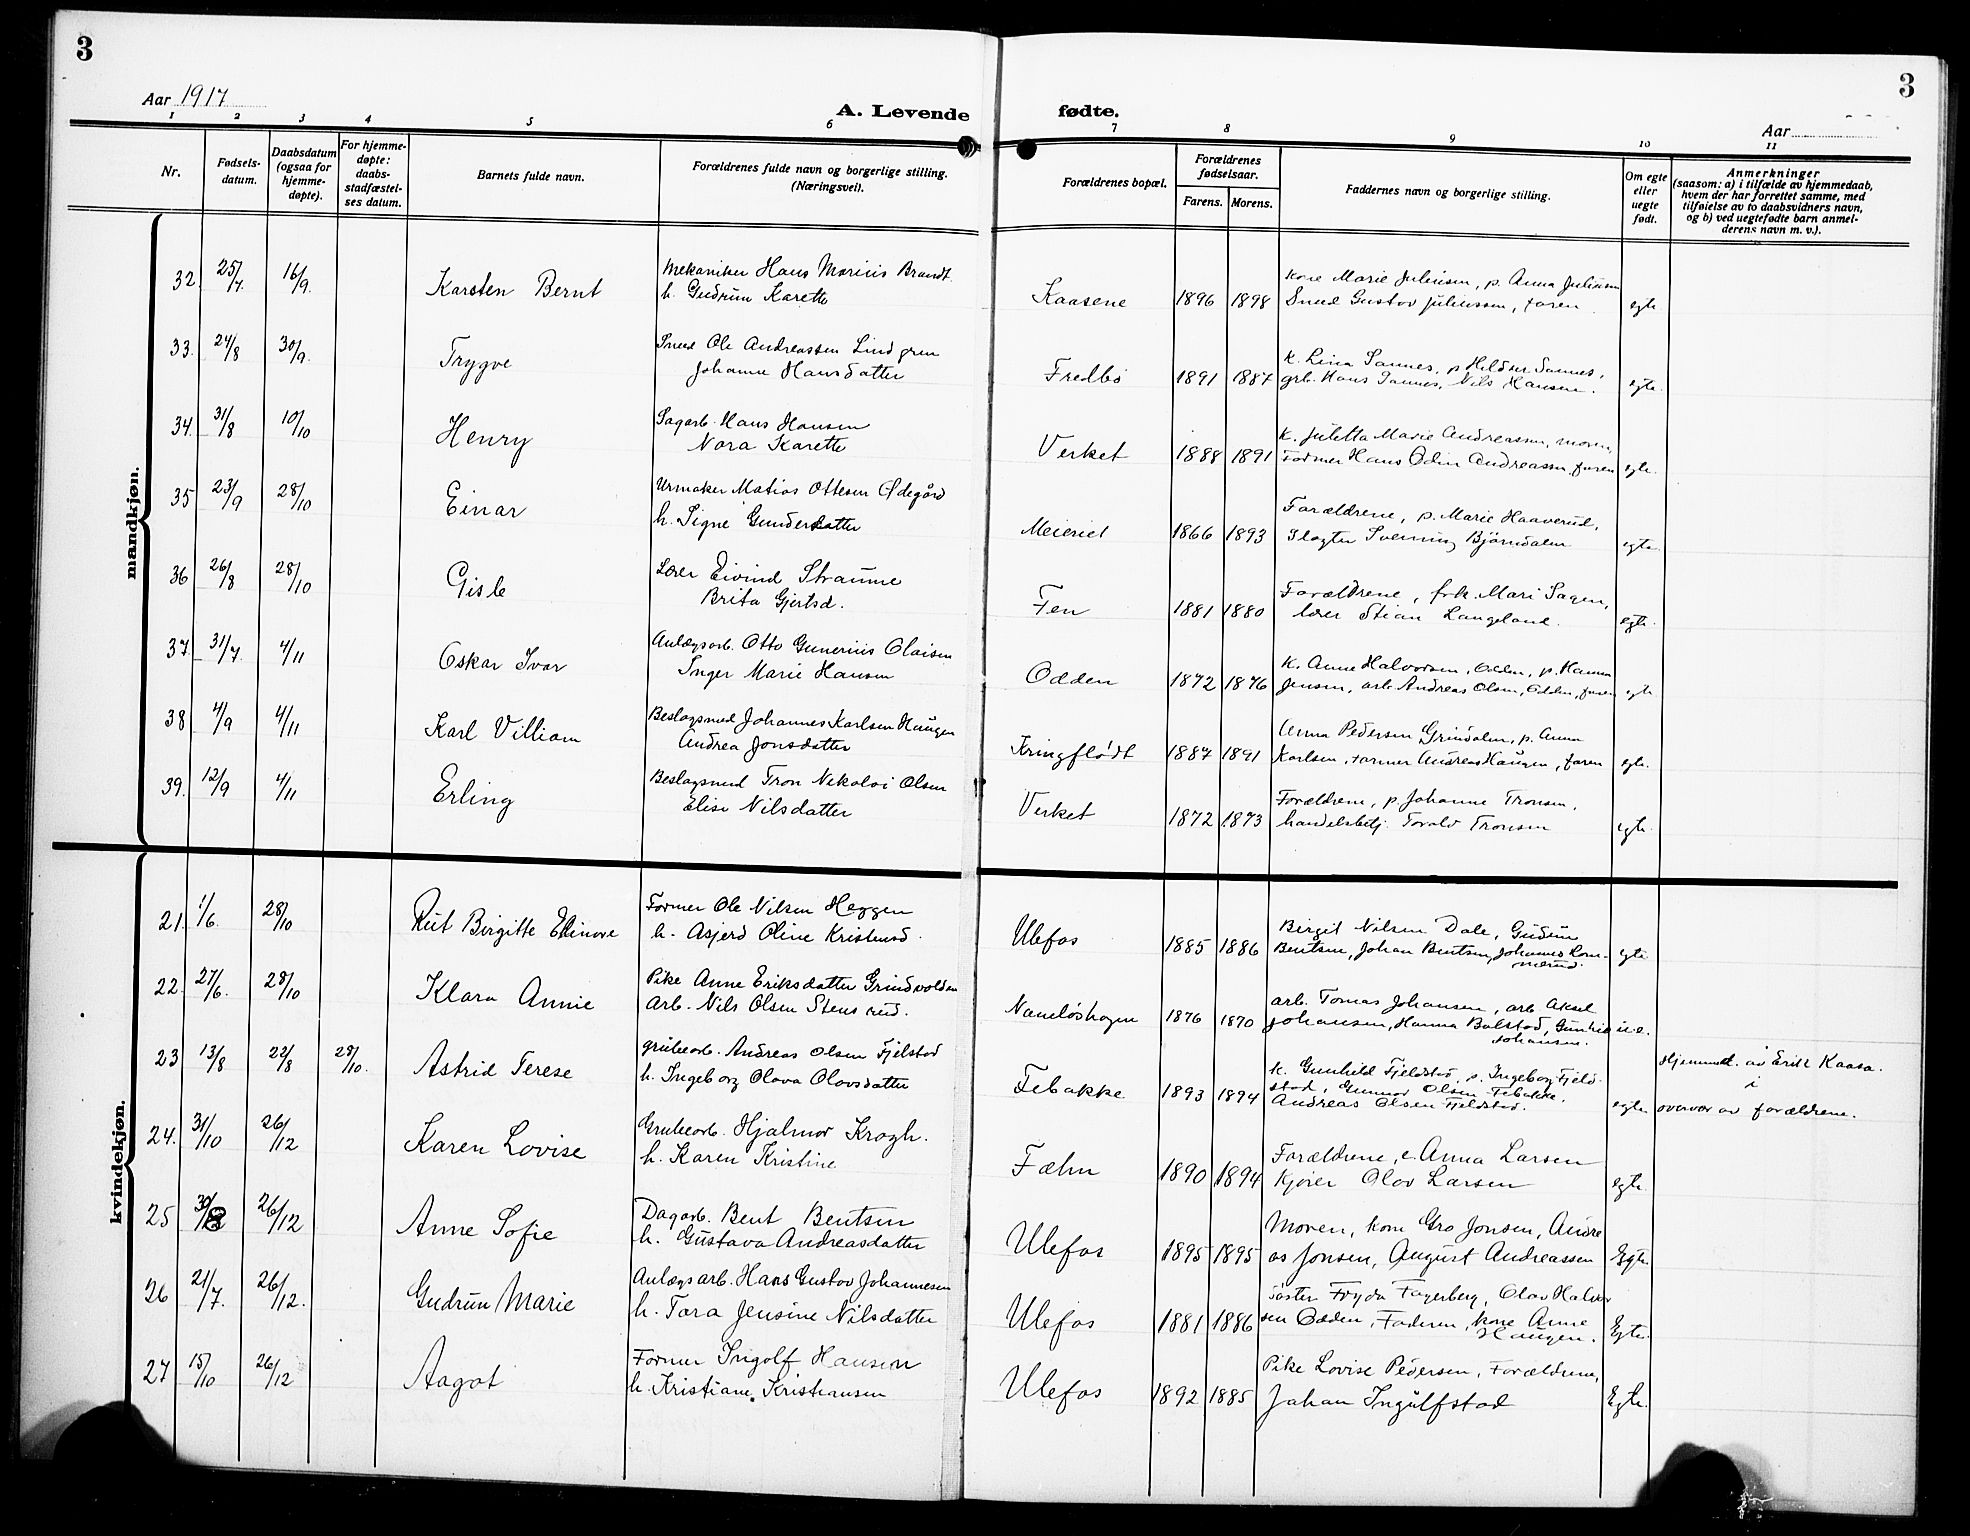 3
3
Aar 1917
A. Levende
fødte.
Aar
1 2 3 4 5 6
7 8 9 10 11
Nr.
Fødsels-
datum.
Daabsdatum
(ogsaa for
hjemme-
døpte).
For hjemme-
døpte:
daabs-
stadfæstel-
ses datum.
Barnets fulde navn.
Forældrenes fulde navn og borgerlige stilling.
(Næringsvei).
Forældrenes bopæl.
Forældrenes
fødselsaar.
Farens. Morens.
Faddernes navn og borgerlige stilling.
Om egte
eller
uegte
født.
Anmerkninger
(saasom: a) i tilfælde av hjemmedaab,
hvem der har forrettet samme, med
tilføielse av to daabsvidners navn,
og b) ved uegtefødte barn anmel-
derens navn m. v.).
mandkjøn.
32. 25/7 16/9. Karsten Bernt
Mekaniker Hans Marius Brandt
h. Gudrun Karette
Kaasene 1896 1898
Kone Marie Juliusen, p. Anna Juliusen
Smed Gustav Juliussen, faren
egte
33. 24/8 30/9. Trygve
Smed Ole Andreassen Lindgren
Johanne Hansdatter
Fredbo 1891 1887
k. Lina Sannes, p. Sannes,
grb. Hans Sannes, Nils Hansen.
egte.
34. 31/8 10/10 Henry
Sagarb. Hans Hansen
Nora Karette
Verket 1888 1891
K. Juletta Marie Andreassen, moren,
Former Hans Odin Andreassen, faren
egte.
35 23/9 28/10 Einar
Urmaker Matias Ottesen Ødegård
h. Signe Gundersdatter
Meieriet 1866 1893
Forældrene, p. Marie Haaverud,
Slagter Sverning Bjørndalen
egte.
36 26/8 28/10 Gisle
Lærer Eivind Straume
Brita Gjertsd.
Fen 1881 1880
Forældrene, frk. Mari Sagen,
lærer Stian Langeland.
egte.
37. 31/7. 4/11 Oskar Ivar
Anlægsarb. Otto Gunerius Olaisen
Inger Marie Hansen
Odden 1872 1876
K. Anne Halvorsen, Odden, p. Hanna
Jensen, arb. Andreas Olsen, Odden, faren
egte
38 4/9 4/11 Karl Villiam
Beslagsmed Johannes Karlsen Haugen
Andrea Jonsdatter
Kringflødt 1887 1891
Anna Pedersen Grindalen, p. Anna
Karlsen, former Andreas Haugen, faren
egte.
39. 12/9 4/11 Erling
Beslagsmed Tron Nikolai Olsen
Elise Nilsdatter
Verket 1872 1873
Forældrene, p. Johanne Tronsen,
handelsbetj. Torald Tronsen
egte.
kvindekjøn.
21. 1/6. 28/10 Rut Birgitte Elinore
Former Ole Nilsen Heggen
h. Asjerd Oline Kristensd.
Ulefos 1885 1886
Birgit Nilsen Dale, Gudrun
Bentsen, Johan Bentsen, Johannes Rom-
nærud.
egte
22. 27/6. 28/10 Klara Annie
Pike Anne Eriksdatter Grindvolden
Arb. Nils Olsen Stensrud.
Nameløshagen 1876 1870
arb. Tomas Johansen, arb Aksel
Johansen, Hanna Bolstad, Gunhild
Johansen.
u.e.
23 13/8 22/8 28/10. Astrid Terese
grubearb. Andreas Olsen Fjelstad
h. Ingeborg Olava Olavsdatter
Tebakke 1893 1894
k. Gunhild Fjeldstad, p. Ingeborg Fjeld-
stad, Gunnar Olsen Tebakke.
Andreas Olsen Fjeldstad.
egte
Hjemmed. av Erik Kaasa.
i
overvær av forældrene.
24. 31/10 26/12 Karen Lovise
Grubearb. Hjalmar Krogh.
h. Karen Kristine
Fæhn 1890 1894
Forældrene, e. Anna Larsen
Kjører Olav Larsen
egte.
25 26/12 Anne Sofie
Dagarb. Bent Bentsen
h. Gustava Andreasdatter
Ulefos 1895 1895
Moren, kone Gro Jonsen, Andre
as Jonsen, August Andreassen
Egte.
26 21/7. 26/12. Gudrun Marie
Anlægsarb. Hans Gustav Johannesen
h. Tara Jensine Nilsdatter
Ulefos 1881 1886
Søster Fryda Fagerberg, Olav Halvor
sen Odden, Faderen, kone Anne
Haugen.
Egte.
27 15/10 26/12 Aagot
Former Ingolf Hansen
h. Kristiane Kristiansen
Ulefos 1892 1885
Pike Lovise Pedersen, Forældrene,
Johan Ingulfstad
Egte.